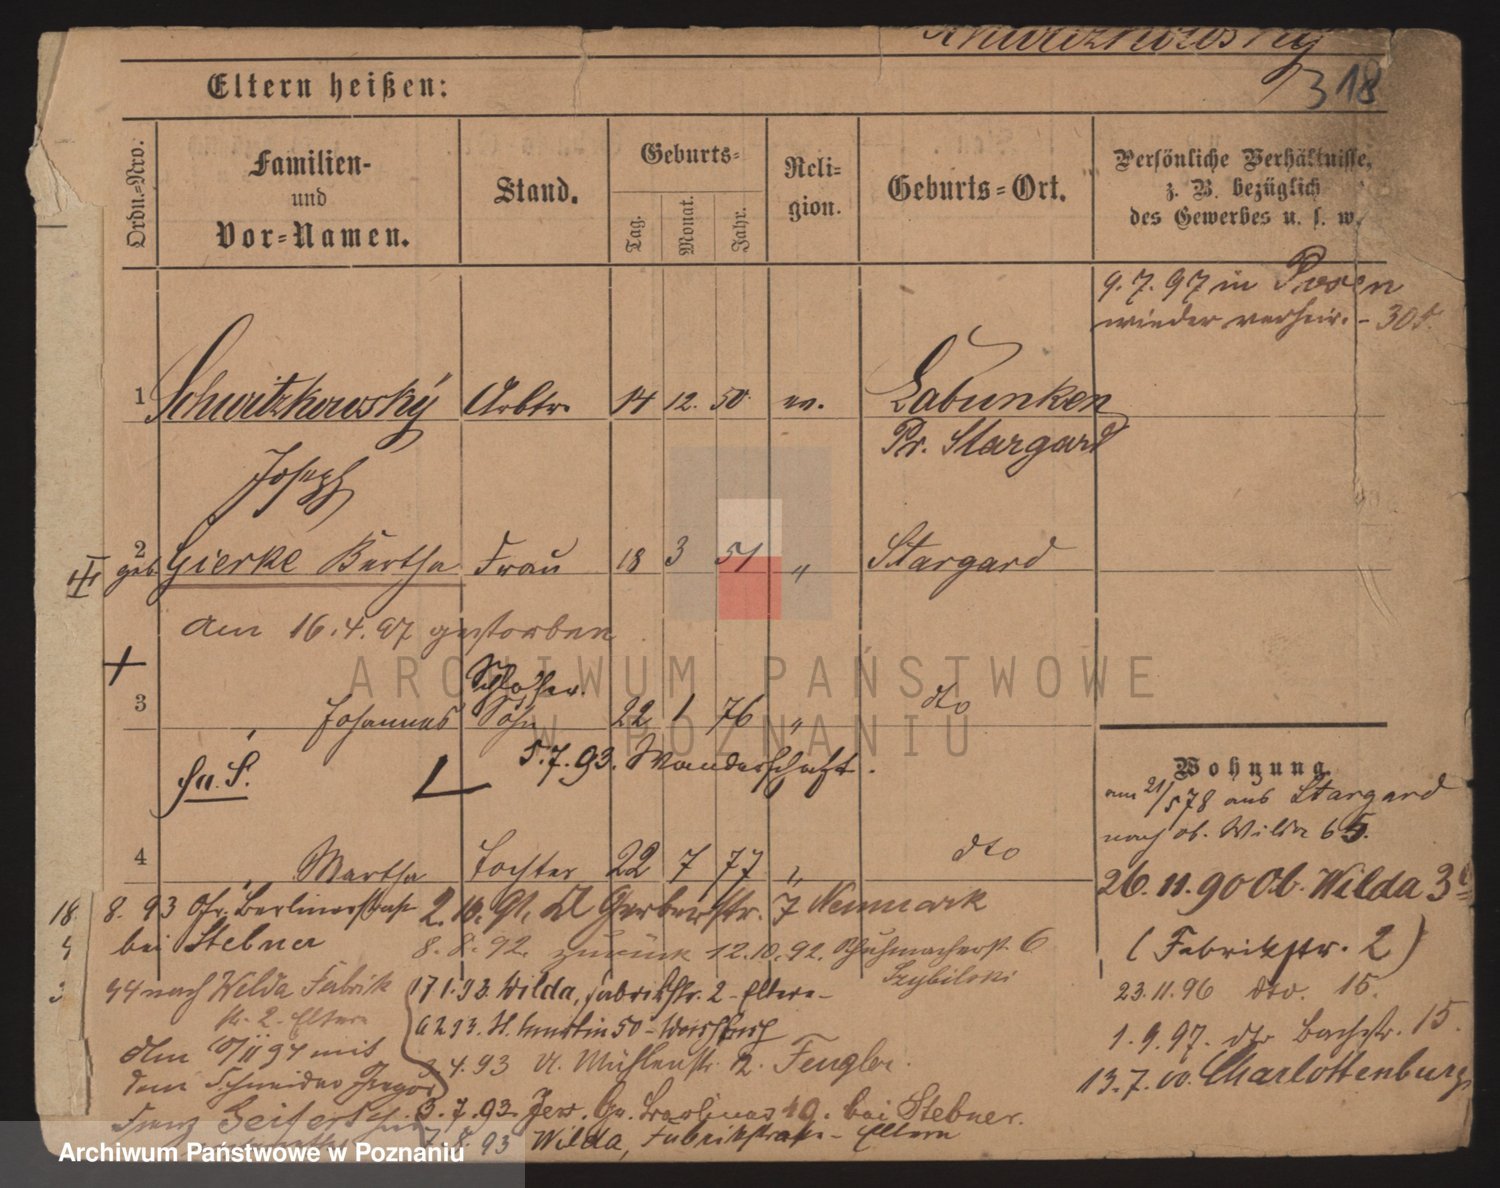 318
Eltern heißen:
Ordn.-Nro.
Familien-
und
Vor-Namen.
Stand.
Geburts-
Tag.
Monat.
Jahr.
Reli-
gion.
Geburts-Ort.
Persönliche Verhältnisse,
z. B. bezüglich
des Gewerbes u. s. w.
9. 7. 97 in Posen
wieder verheir. - 305.
1 Schwitzkowsky Arbtr. 14 12. 50. ev. Labunken
Pr. Stargard
Joseph
2 geb. Gierke Bertha Frau 18 3 51 " Stargard
am 16.4.97 gestorben
3 " Johannes Schlosser. Sohn 22 1 76 " dto
5.7.93. Wanderschaft.
4 " Martha Tochter 22 7 77 " dto
Wohnung
am 21/5 78 aus Stargard
nach ob. Wilda 65.
26. 11. 90 Ob. Wilda 3
(Fabrikstr. 2)
23. 11. 96 dto. 15.
1. 9. 97. dto Bachstr. 15.
13. 7. 00. Charlottenburg
18. 8. 93 Berlinerstraße
bei Stebner
94 nach Wilda Fabrik
str. 2 - Eltern
2. 10. 91. Gerberstr. 7 Neumark
8. 8. 92. zurück 12. 10. 92. Schuhmacherst. 6
17 1. 93. Wilda, Fabrikstr. 2 - Eltern -
6 2 93. St. Martin 50 -
4. 93 Mühlenstr. 2. Fengler.
3. 7. 93. 19. bei Stebner.
7. 8. 93 Wilda, Fabrikstraße - Eltern
mit
dem Schneider Gregor
Franz Seifert
ARCHIWUM PAŃSTWOWE
W POZNANIU
Archiwum Państwowe w Poznaniu